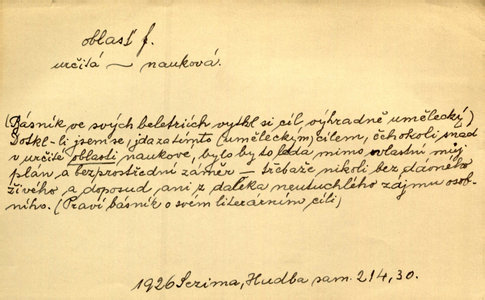 oblast f.
určitá — nauková.
(Básník ve svých beletriích vytkl si cíl výhradně umělecký)
Dotkl-li jsem se, jda za tímto (uměleckým) cílem, čehokoli snad
v určité oblasti naukové, bylo by to leda mimo vlastní můj
plán a bezprostřední záměr — třebaže nikoli bez dávného
živého a doposud ani z daleka neutuchlého zájmu osob-
ního. (Praví básník o svém literárním cíli)
1926 Sezima, Hudba sam. 214, 30.